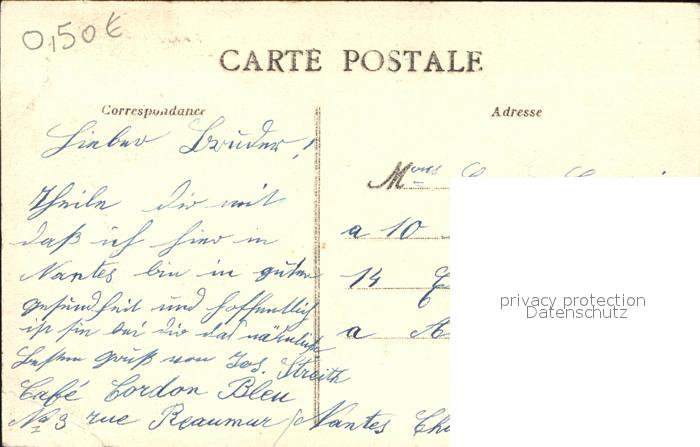 0,50€
CARTE POSTALE
Correspondance
Adresse
Lieber Bruder!
Theile dir mit
daß ich hier in
Nantes bin in guter
gesundheit und hoffentlich
ist sie bei dir das nämliche
besten gruß von Jos. Streith
Café Cordon Bleu
No 3 rue Reaumur Nantes
Mons
a 10
14
a
privacy protection
Datenschutz